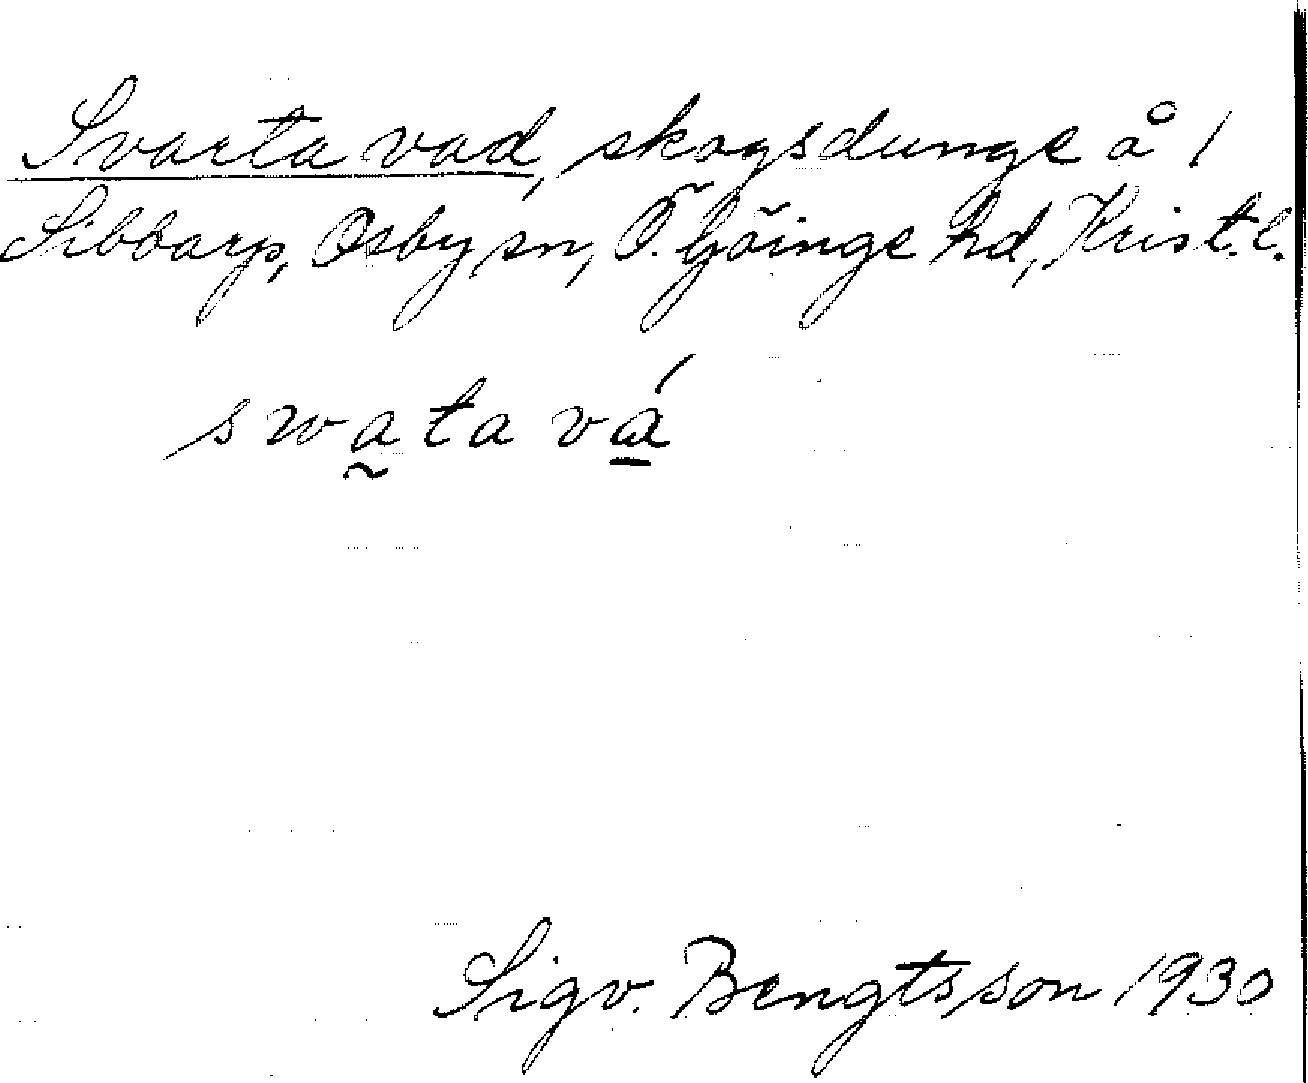 Svarta vad, skogsdunge å 1
Sibbarp, Osby sn, Ö. Göinge hd, Krist. l.
swa̰ta vá̲
Sigv. Bengtsson 1930